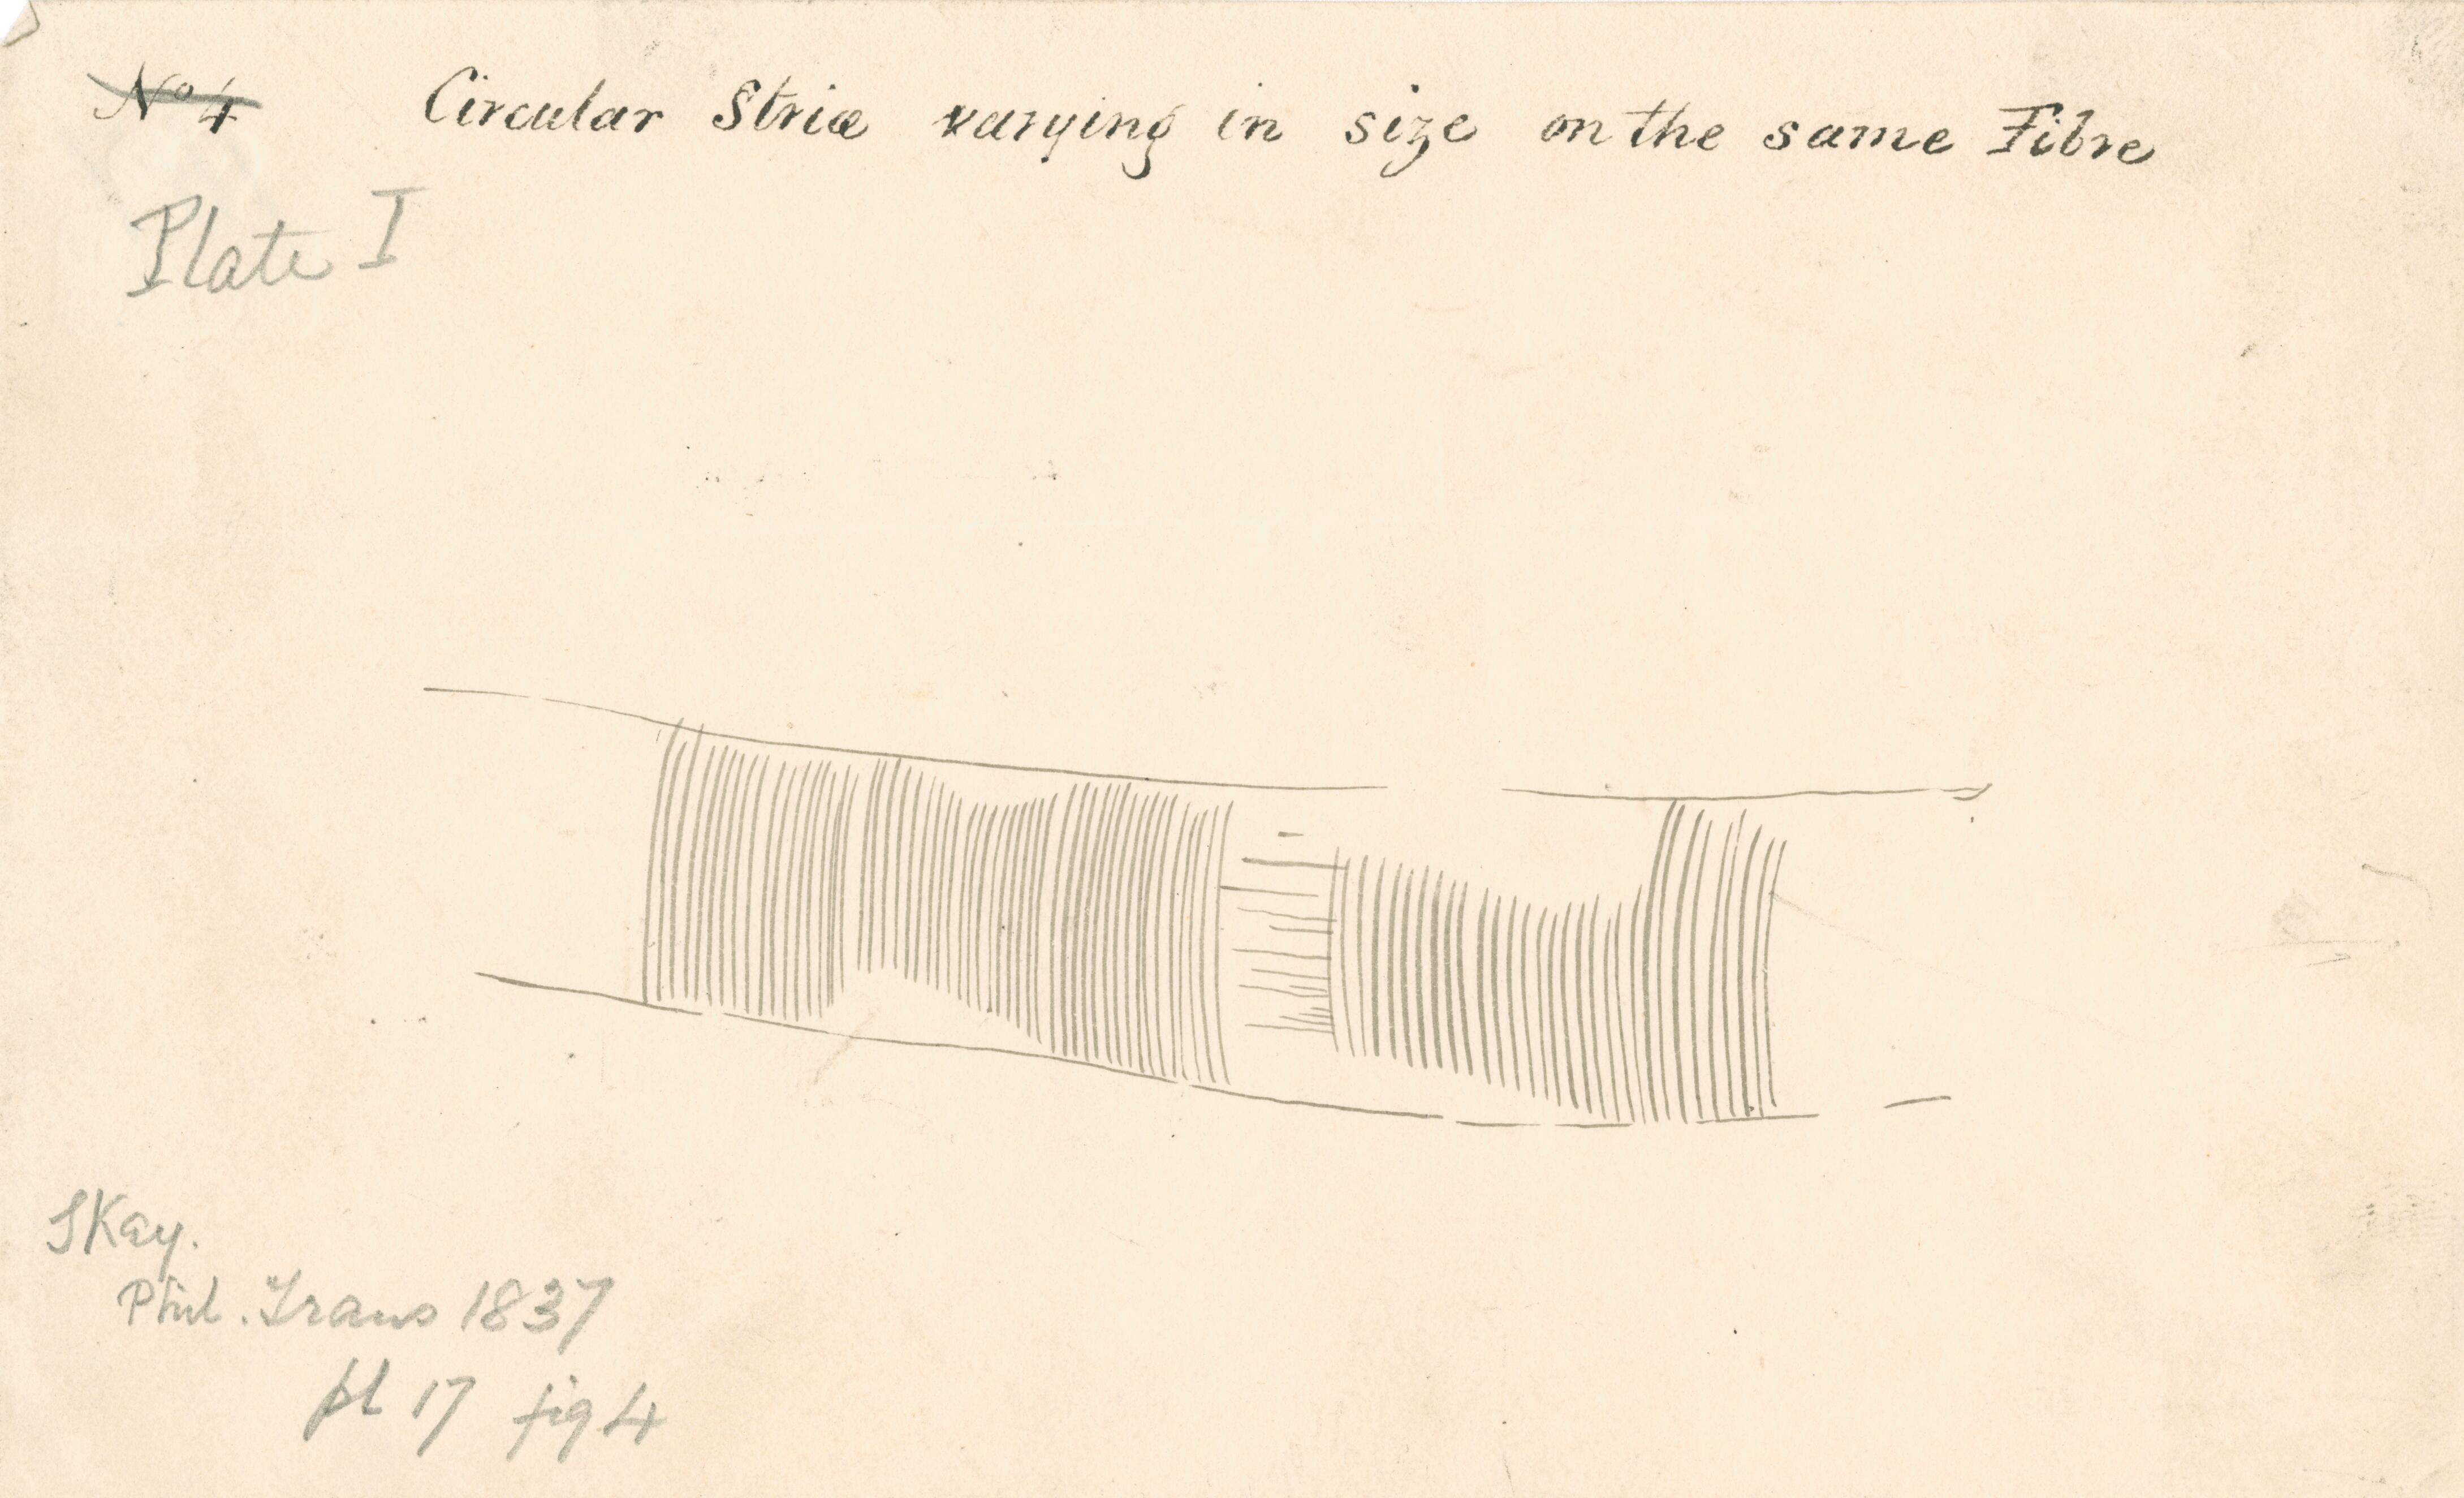 No 4 Circular Striæ varying in size on the same Fibre
Plate I
SKey.
Phil. Trans 1837
pl 17 fig 4